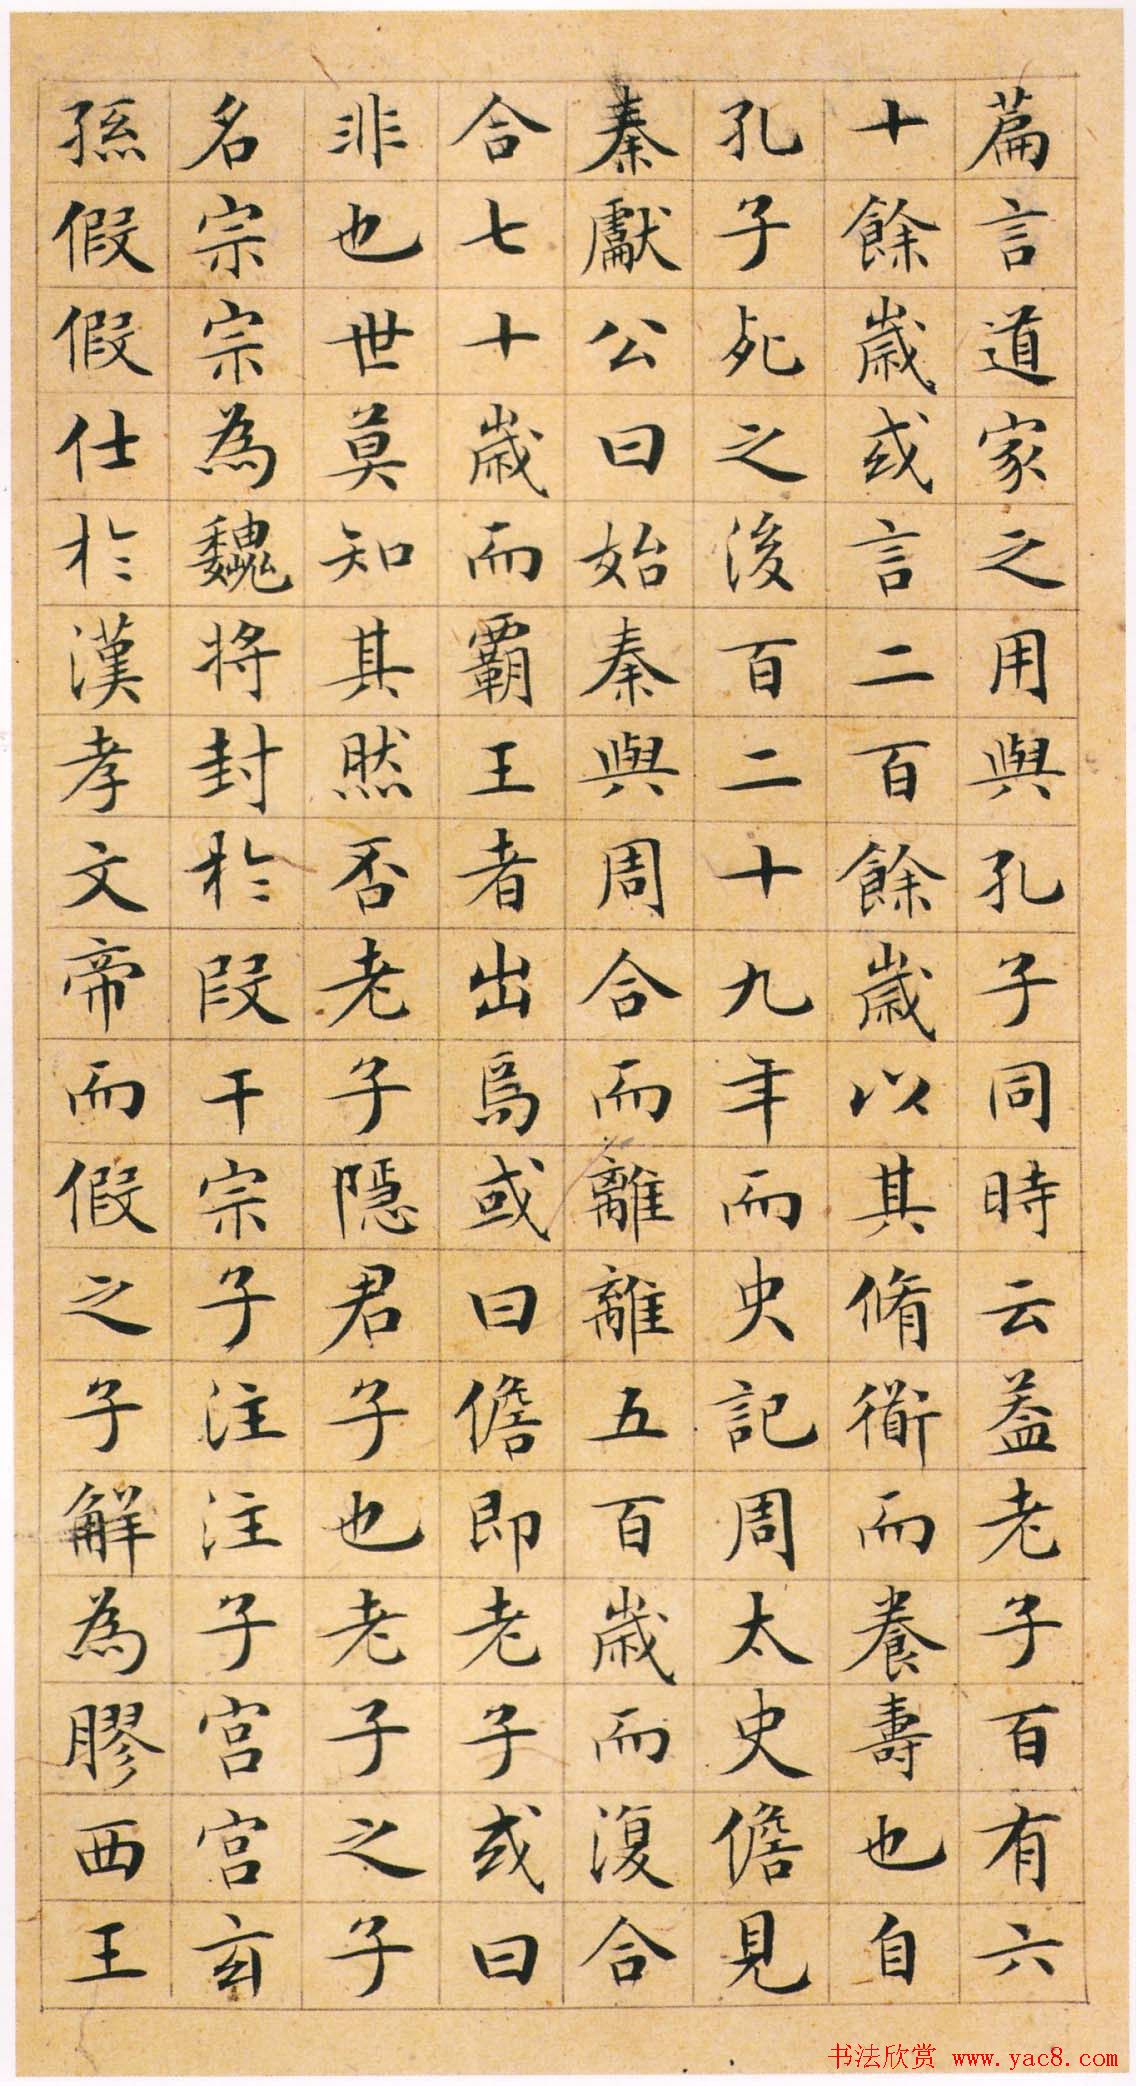 篇言道家之用與孔子同時云蓋老子百有六
十餘歲或言二百餘歲以其脩衜而養壽也自
孔子死之後百二十九年而史記周太史儋見
秦獻公曰始秦與周合而離離五百歲而復合
合七十歲而霸王者出焉或曰儋即老子或曰
非也世莫知其然否老子隱君子也老子之子
名宗宗為魏將封於段干宗子注注子宮宮玄
孫假假仕於漢孝文帝而假之子解為膠西王
书法欣赏 www.yac8.com